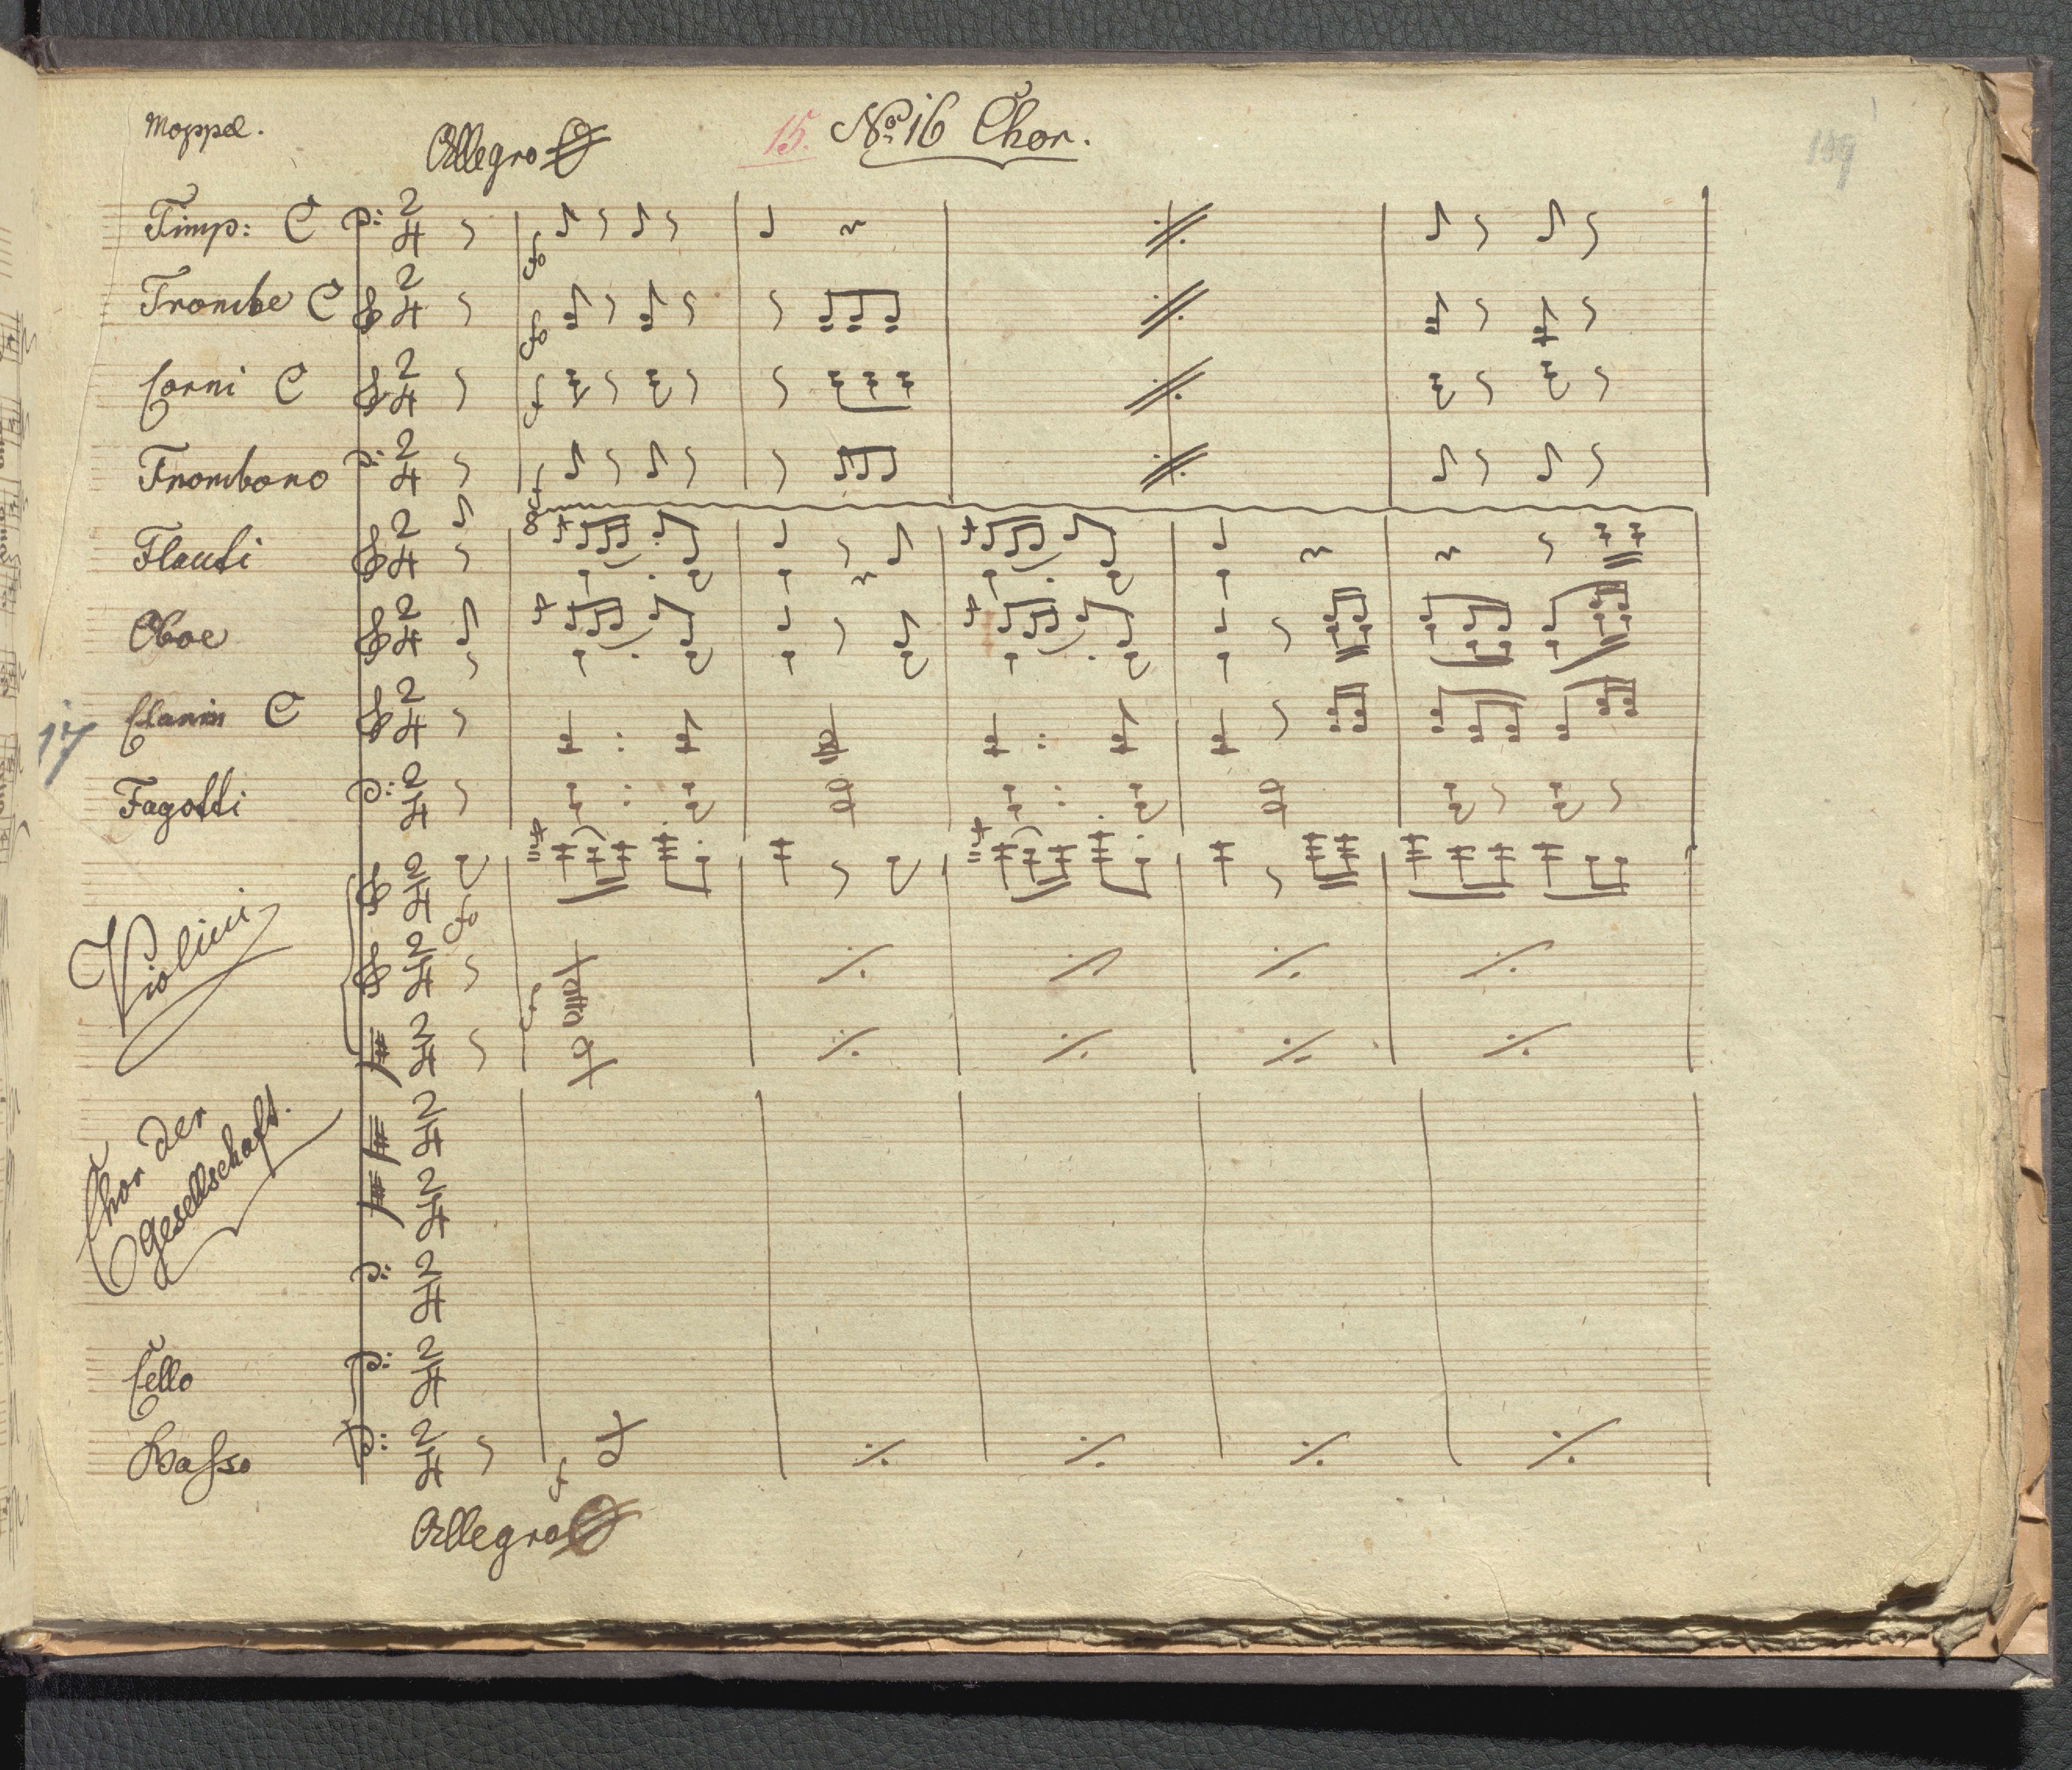 Moppel.
Allegro
15. No. 16 Chor.
189
Timp: C
Trombe C
Corni C
Trombono
Flauti
Oboe
17
Clarin C
Fagotti
Violini
Chor der
Gesellschaft.
Cello
Basso
Allegro